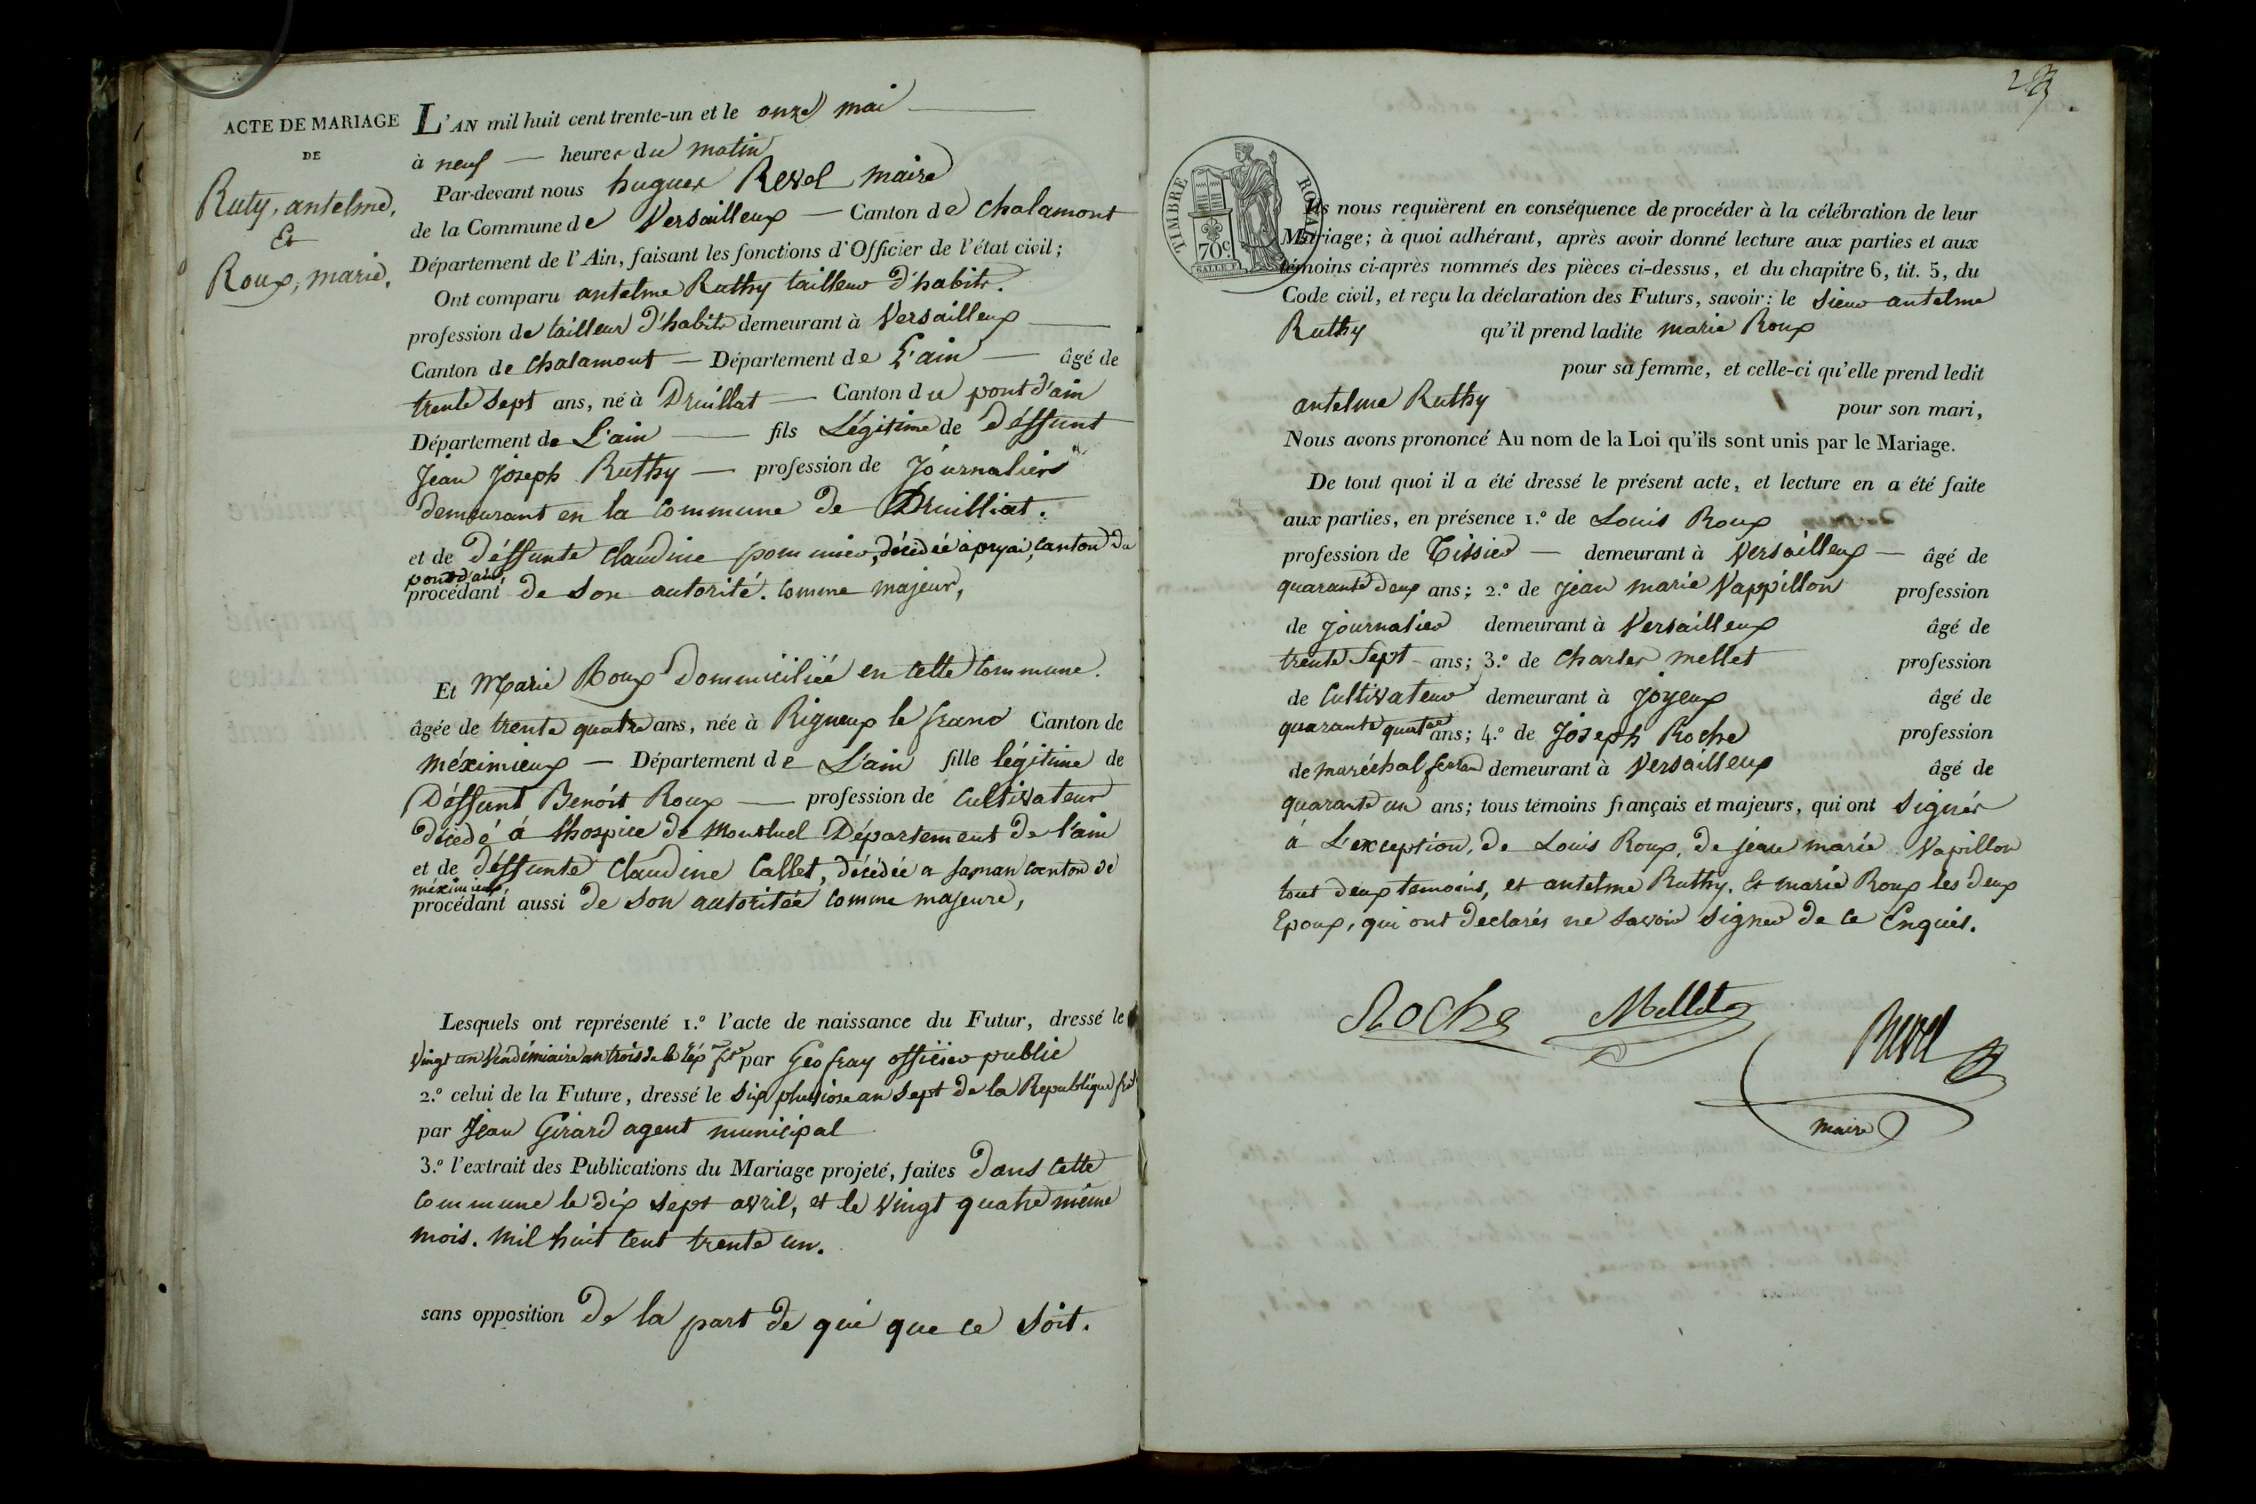 ACTE DE MARIAGE
DE
Ruty, antelme,
Et
Roux, marie,
L'AN mil huit cent trente-un et le onze mai
à neuf heures du matin
Par-devant nous hugues Revel maire
de la Commune de Versailleux Canton de chalamont
Département de l'Ain, faisant les fonctions d'Officier de l'état civil;
Ont comparu antelme Ruthy tailleur d'habits.
profession de tailleur d'habits demeurant à Versailleux
Canton de chalamont Département de L'ain âgé de
trente sept ans, né à Druillat Canton du pont d'ain
Département de L'ain fils Légitime de déffunt
Jean Joseph Ruthy profession de Journaliers
demeurant en la Commune de Druilliat.
et de déffunte Claudine pommier, décédée a pryai, canton du
pont d'ain
procédant de son autorité. comme majeur,
Et Marie Roux Dommiciliée en cette Commune.
âgée de trente quatre ans, née à Rigneux le franc Canton de
méximieux Département de L'ain fille légitime de
Déffunt Benoit Roux profession de Cultivateur
décédé á l'hospice de Montluel Département de l'ain
et de déffunte Claudine Callet, décédée a saman canton de
méximieux,
procédant aussi de son autoritée comme majeure,
Lesquels ont représenté 1.º l'acte de naissance du Futur, dressé le
Vingt un Vendémiaire an trois de la Rép par Geofray officier public
2.º celui de la Future, dressé le six pluviose an sept de la Republique
par Jean Girard agent municipal
3.º l'extrait des Publications du Mariage projeté, faites dans cette
Commune le dix sept avril, et le Vingt quatre même
mois. mil huit cent trente un.
sans opposition de la part de qui que ce soit.
29
TIMBRE ROYAL
70c
Ils nous requièrent en conséquence de procéder à la célébration de leur
Mariage; à quoi adhérant, après avoir donné lecture aux parties et aux
témoins ci-après nommés des pièces ci-dessus, et du chapitre 6, tit. 5, du
Code civil, et reçu la déclaration des Futurs, savoir: le sieur antelme
Ruthy qu'il prend ladite marie Roux
pour sa femme, et celle-ci qu'elle prend ledit
antelme Ruthy pour son mari,
Nous avons prononcé Au nom de la Loi qu'ils sont unis par le Mariage.
De tout quoi il a été dressé le présent acte, et lecture en a été faite
aux parties, en présence 1.º de Louis Roux
profession de Tissier demeurant à Versailleux âgé de
quarante deux ans; 2.º de Jean marie Vappillon profession
de journalier demeurant à Versailleux âgé de
trente Sept ans; 3.º de Charles mellet profession
de Cultivateur demeurant à Joyeux âgé de
quarante quatre ans; 4.º de Joseph Roche profession
de maréchal ferrand demeurant à Versailleux âgé de
quarante un ans; tous témoins français et majeurs, qui ont signés
à L'exception, de Louis Roux, de jean marie Vapillon
tout deux temoins, et antelme Ruthy, Et marie Roux les deux
Epoux, qui ont declarés ne savoir signer de ce Enquis.
Roche Mellet
Revel
maire